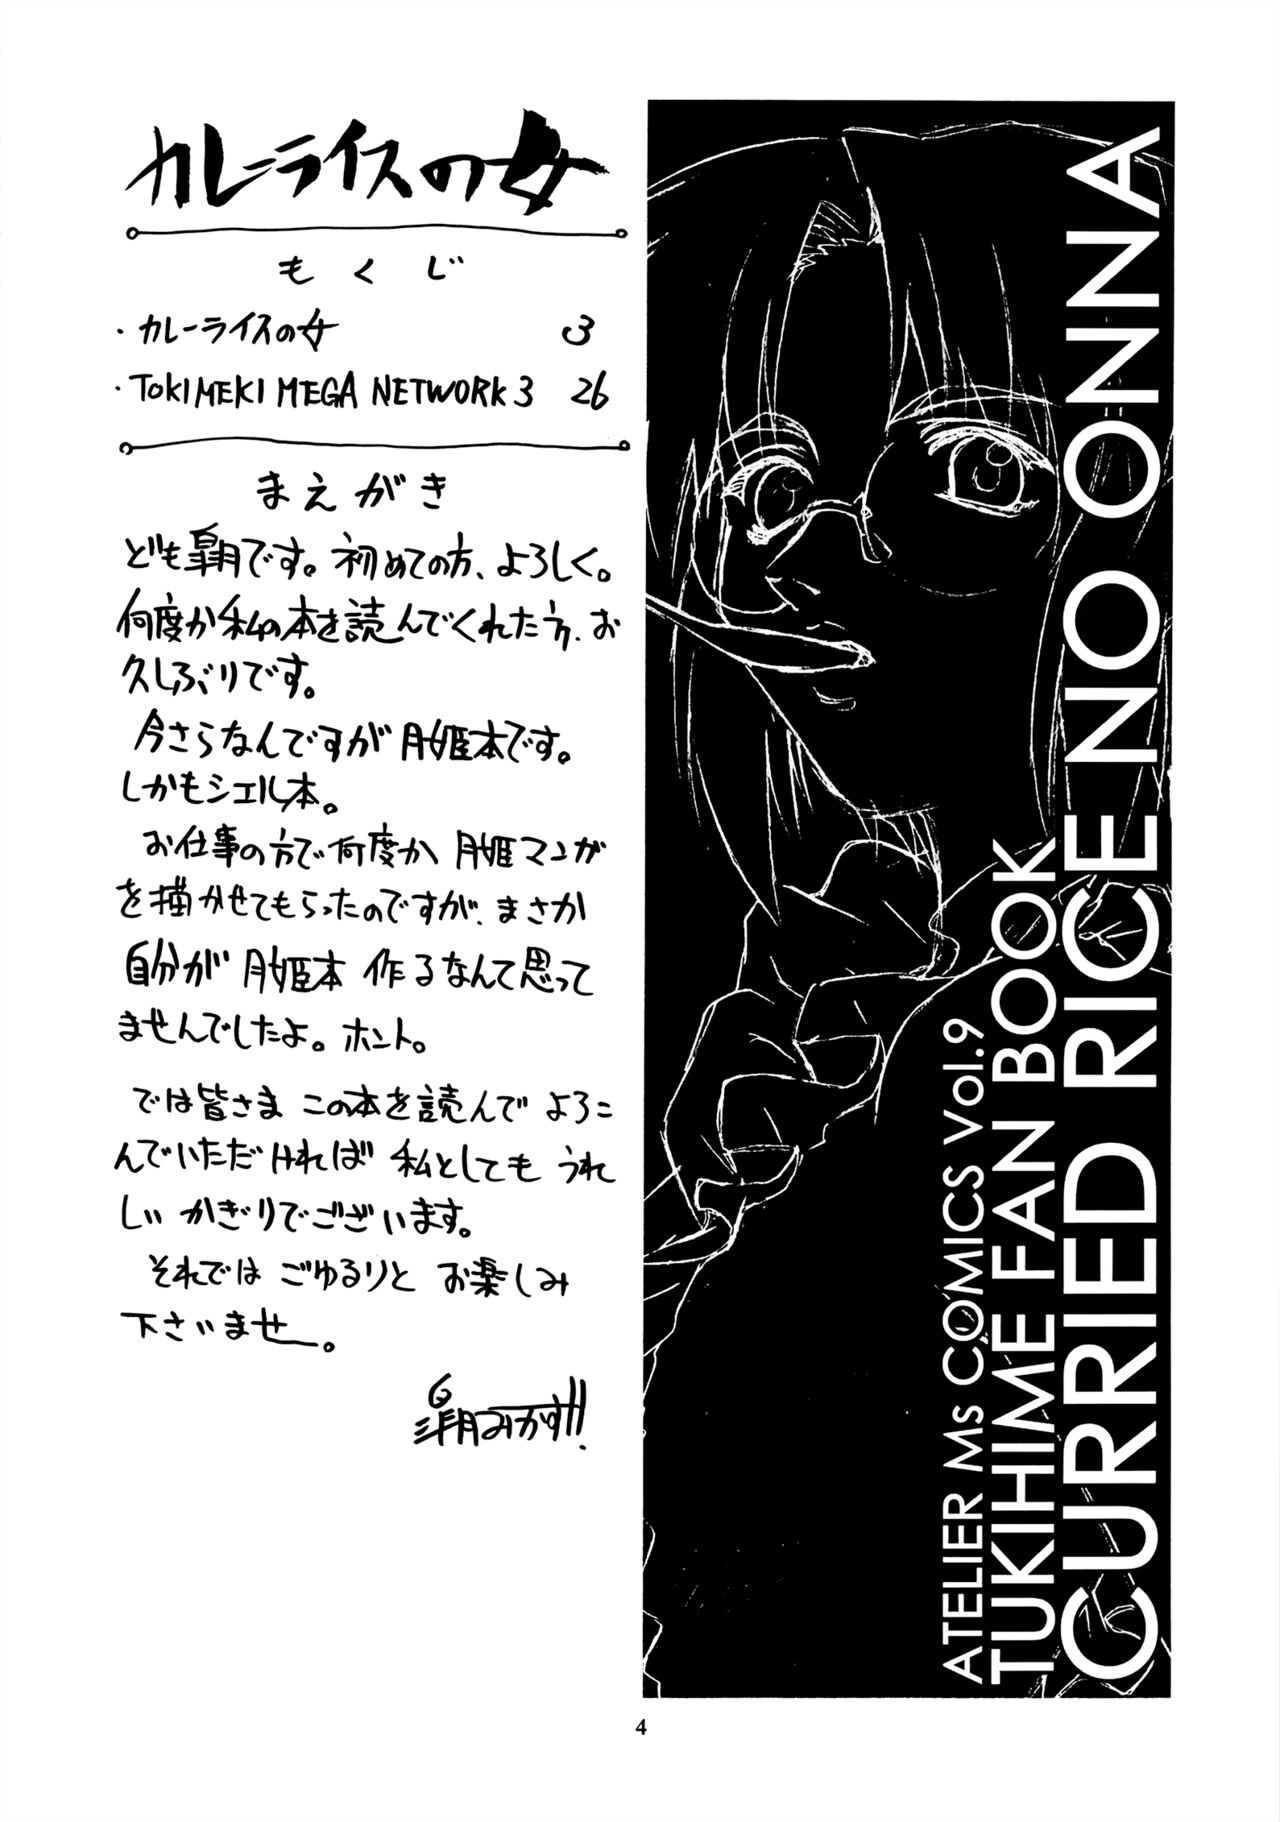 カレーライスの女
もくじ
・カレーライスの女 3
・TOKIMEKI MEGA NETWORK 3 26
まえがき
ども皐月です。初めての方、よろしく。
何度か私の本を読んでくれた方、お
久しぶりです。
今さらなんですが月姫本です。
しかもシエル本。
お仕事の方で何度か 月姫マンガ
を描かせてもらったのですが、まさか
自分が 月姫本 作るなんて思って
ませんでしたよ。ホント。
では皆さま この本を読んで よろこ
んでいただければ 私としても うれ
しい かぎりでございます。
それでは ごゆるりと お楽しみ
下さいませ。
みかず!!
ATELIER Ms COMICS Vol.9
TUKIHIME FAN BOOK
CURRIED RICE NO ONNA
4